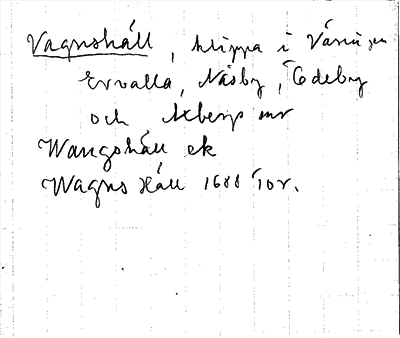 Vagnshäll, klippa i Väringen
Ervalla, Näsby, Ödeby
och Axbergs snr
Wangshäll ek
Wagns Häll 1688 Tor.